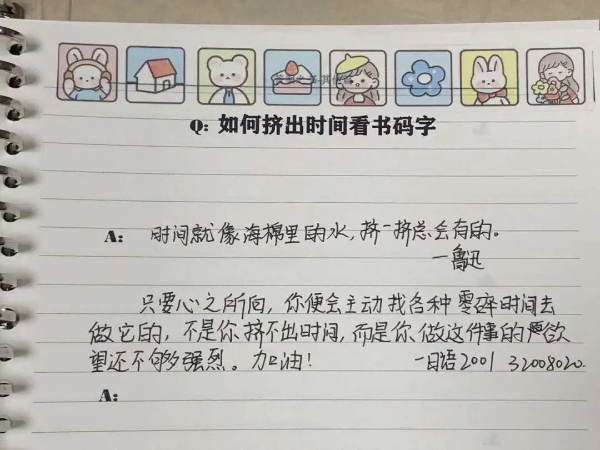 Q: 如何挤出时间看书码字
A: 时间就像海棉里的水,挤一挤总会有的。
—鲁迅
只要心之所向,你便会主动找各种零碎时间去
做它的,不是你挤不出时间,而是你做这件事的欲
望还不够强烈。加油!
—日语2001 32008020.
A: